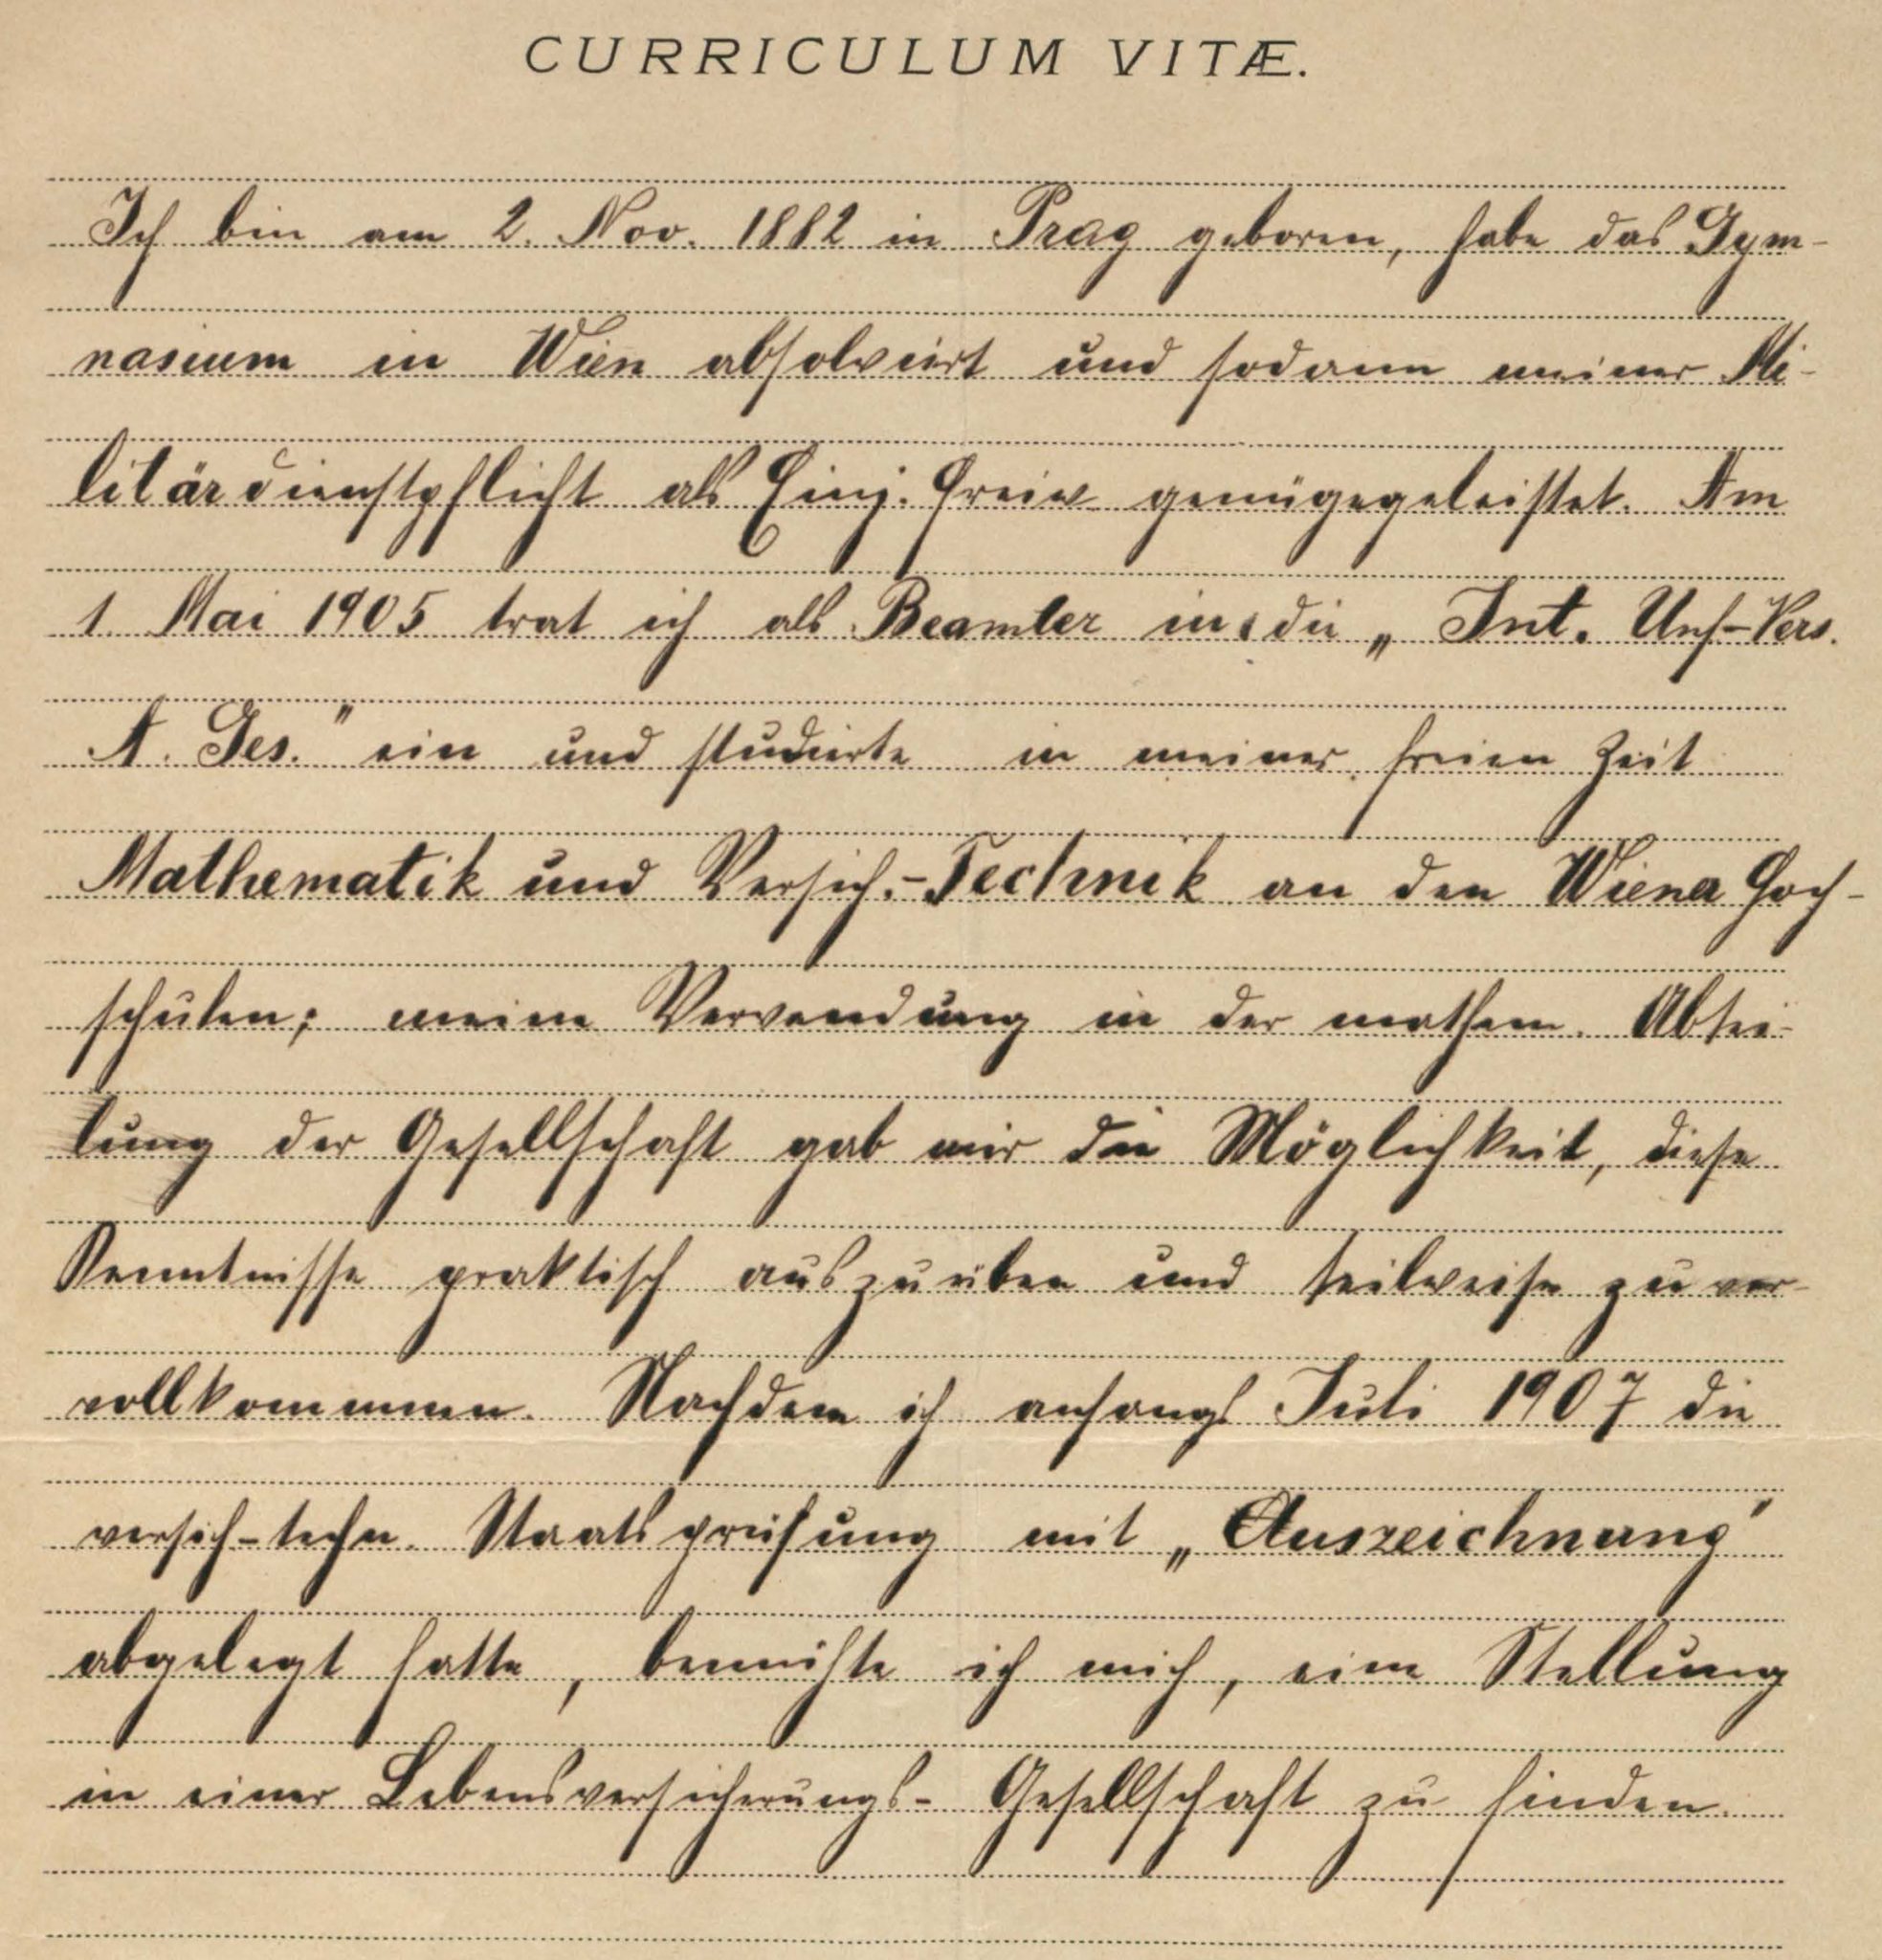 CURRICULUM VITÆ.
Ich bin am 2. Nov. 1882 in Prag geboren, habe das Gym-
nasium in Wien absolviert und sodann meiner Mi-
litärdienstpflicht als Einj. Freiw. genügegeleistet. Am
1. Mai 1905 trat ich als Beamter in die „Int. Unf-Vers.
A. Ges." ein und studierte in meiner freien Zeit
Mathematik und Versich.-Technik an den Wiener Hoch-
schulen; meine Verwendung in der mathem. Abtei-
lung der Gesellschaft gab mir die Möglichkeit, diese
Kenntnisse praktisch auszuüben und teilweise zu ver-
vollkommnen. Nachdem ich anfangs Juli 1907 die
versich-techn. Staatsprüfung mit „Auszeichnung"
abgelegt hatte, bemühte ich mich, eine Stellung
in einer Lebensversicherungs-Gesellschaft zu finden.